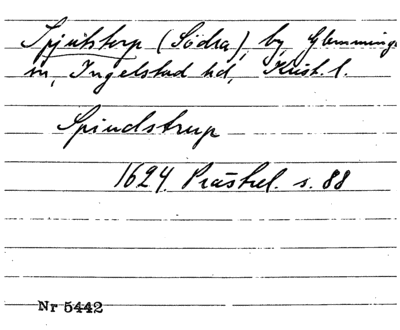 Spjutstorp (Södra) by, Glemminge
sn, Ingelstad hd, Krist. l.
Spiudstrup
1624 Prästrel. s. 88
Nr 5442